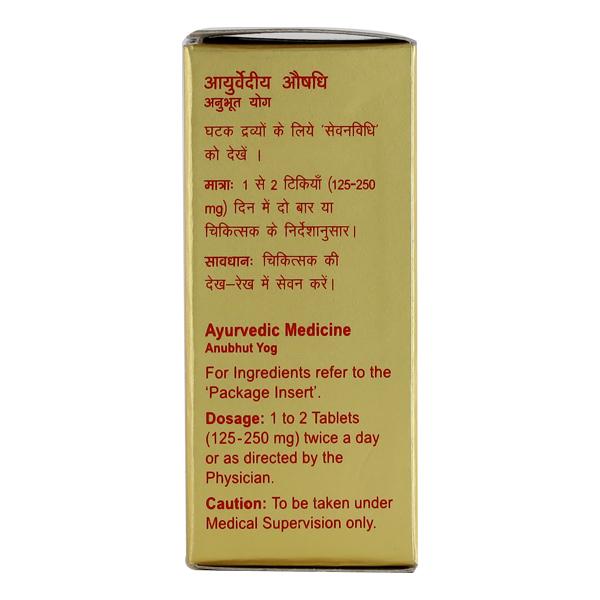 आयुर्वेदीय औषधि
अनुभूत योग
घटक द्रव्यों के लिये 'सेवनविधि'
को देखें ।
मात्राः 1 से 2 टिकियाँ (125-250
mg) दिन में दो बार या
चिकित्सक के निर्देशानुसार।
सावधानः चिकित्सक की
देख-रेख में सेवन करें।
Ayurvedic Medicine
Anubhut Yog
For Ingredients refer to the
'Package Insert'.
Dosage: 1 to 2 Tablets
(125-250 mg) twice a day
or as directed by the
Physician.
Caution: To be taken under
Medical Supervision only.